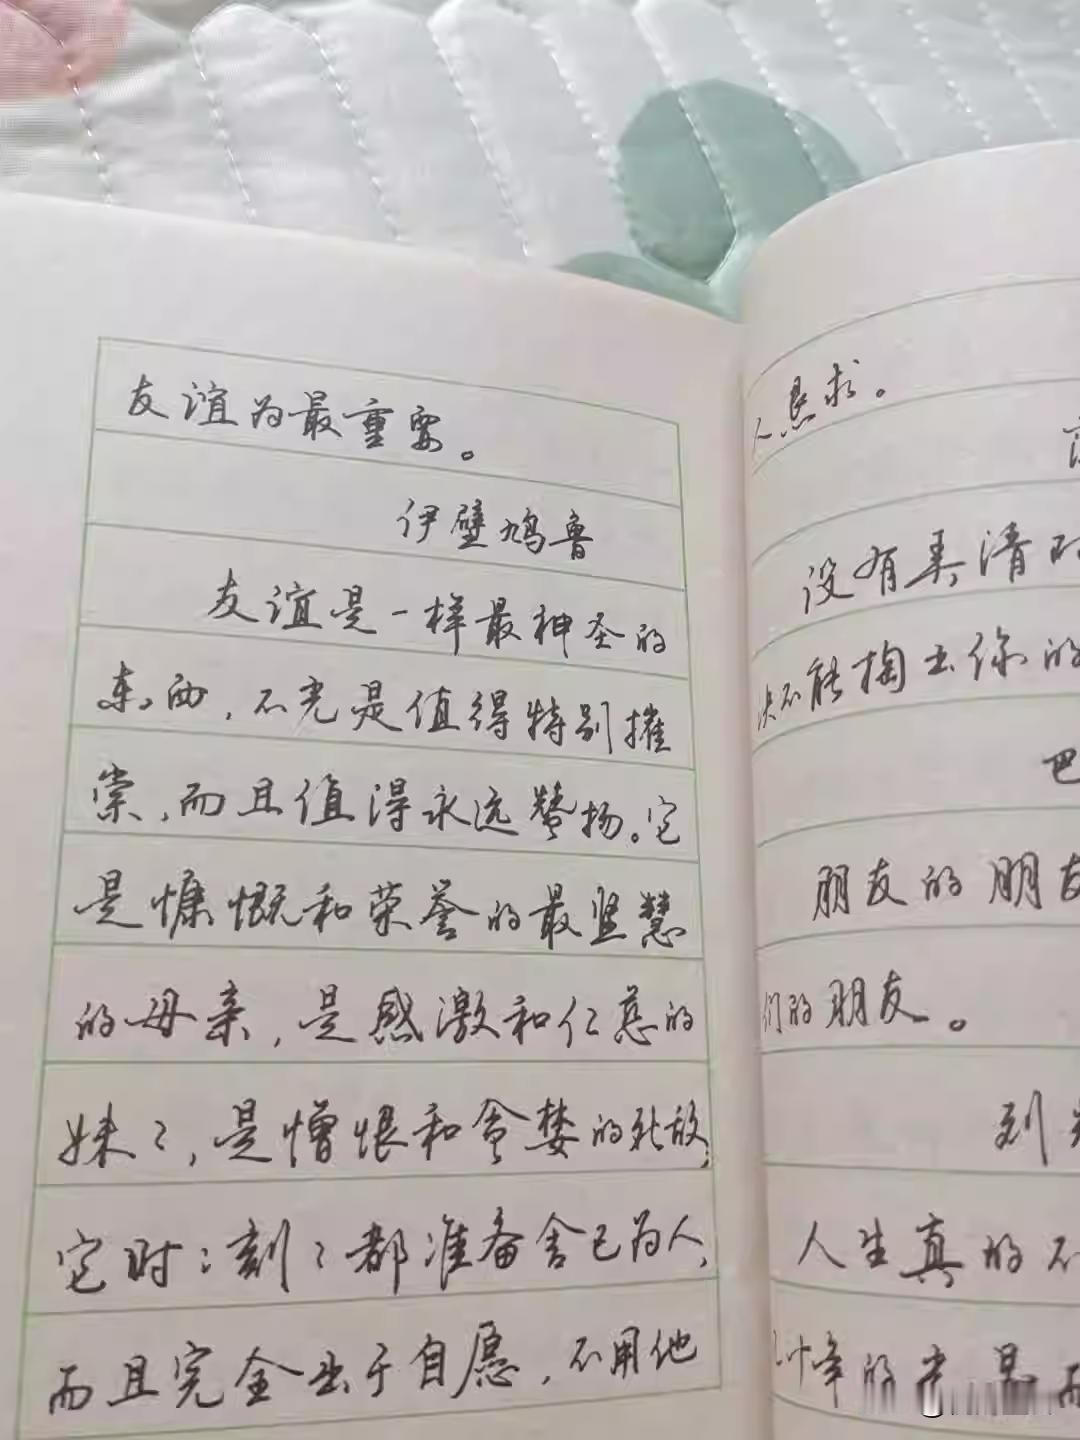 友谊为最重要。
伊壁鸠鲁
友谊是一样最神圣的
东西，不光是值得特别摧
崇，而且值得永远赞扬。它
是慷慨和荣誉的最坚慧
的母亲，是感激和仁慈的
妹々，是憎恨和贪婪的死敌；
它时々刻々都准备舍己为人，
而且完全出于自愿，不用他
人恳求。
没有
决不能掏出你的
巴
朋友的朋友
们的朋友。
到
人生真的不
的 是而